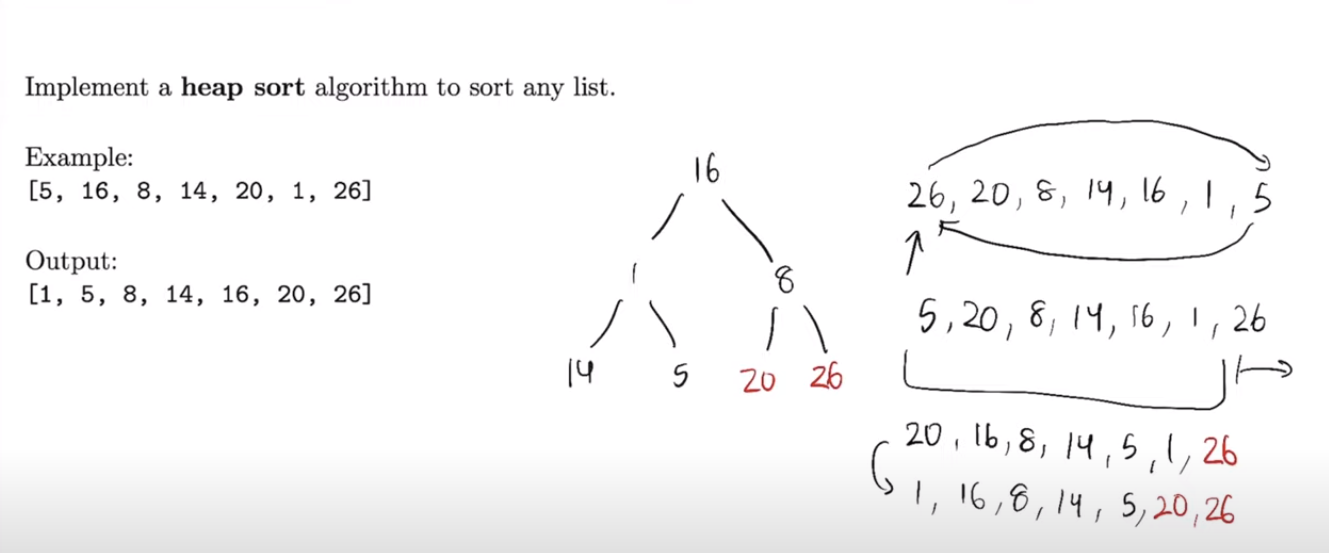 Implement a heap sort algorithm to sort any list.
Example:
[5, 16, 8, 14, 20, 1, 26]
Output:
[1, 5, 8, 14, 16, 20, 26]
16
1 8
14 5 20 26
26, 20, 8, 14, 16, 1, 5
5, 20, 8, 14, 16, 1, 26
20, 16, 8, 14, 5, 1, 26
1, 16, 8, 14, 5, 20, 26